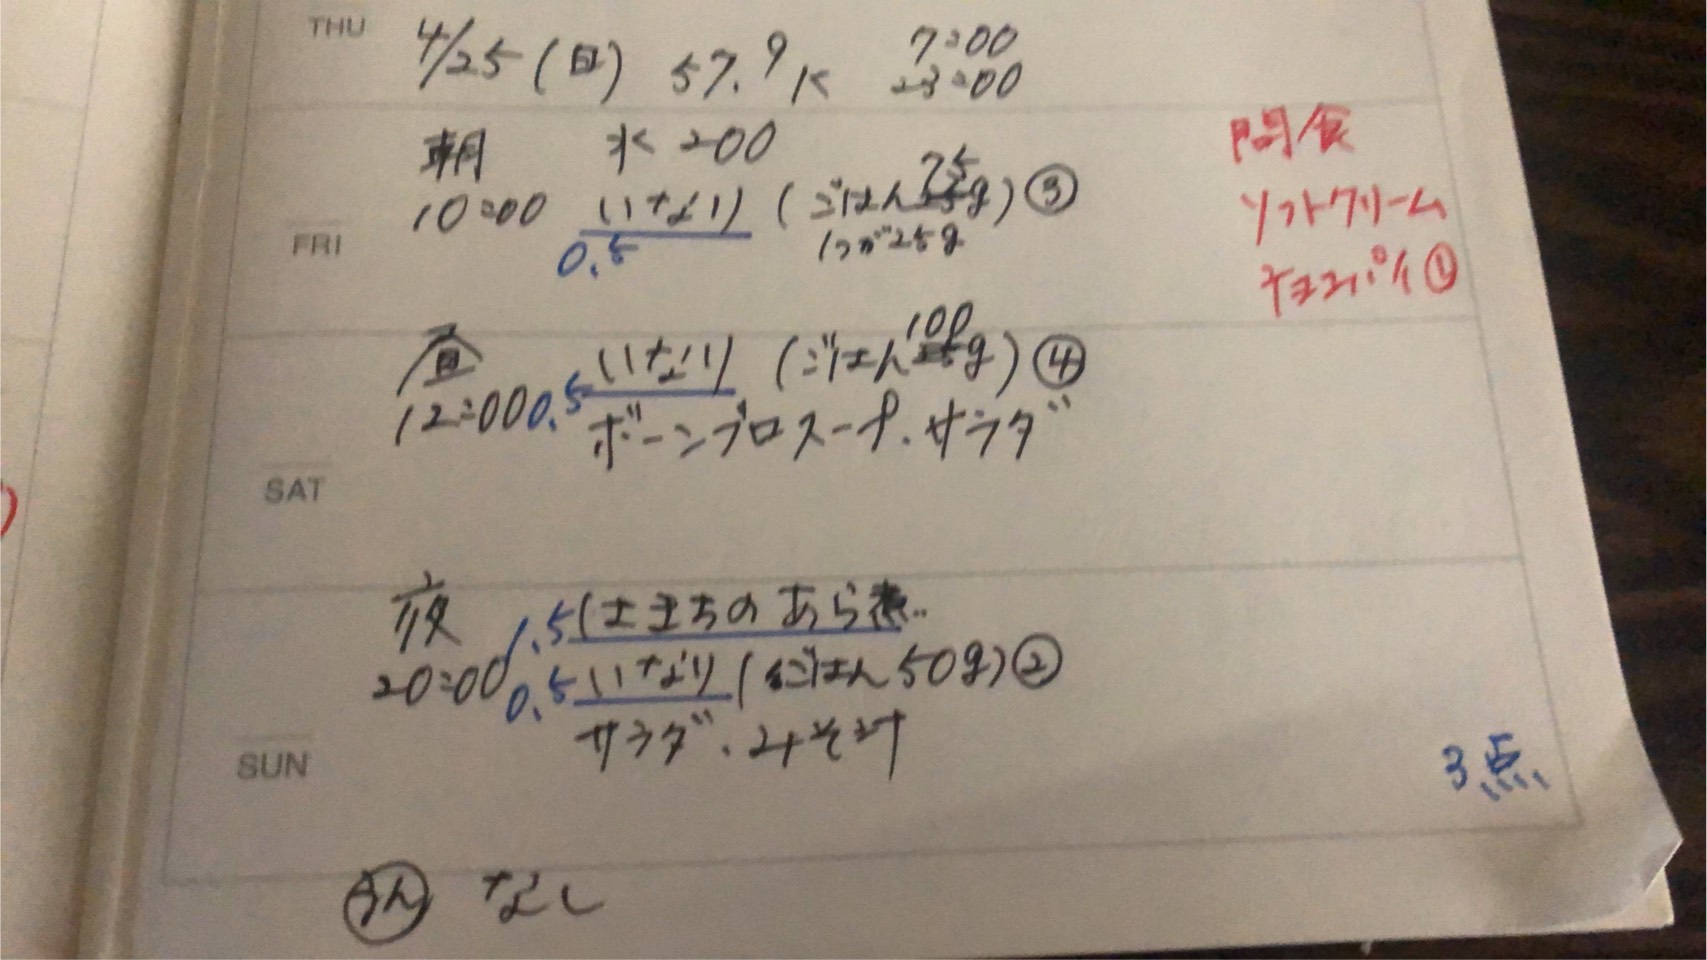 THU
4/25(日) 57.9K 7:00
23:00
朝 水200
10:00 いなり (ごはん75g) ③
0.5 1つが25g
FRI
間食
ソフトクリーム
チョコパイ①
昼 いなり (ごはん100g) ④
12:00 0.5
ボーンブロスープ、サラダ
SAT
夜 1.5 はまちのあら煮
20:00 0.5 いなり (ごはん50g) ②
サラダ、みそ汁
SUN
3点
うん なし